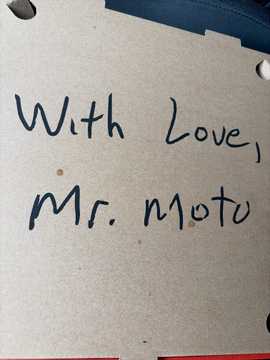 With Love,
Mr. Moto